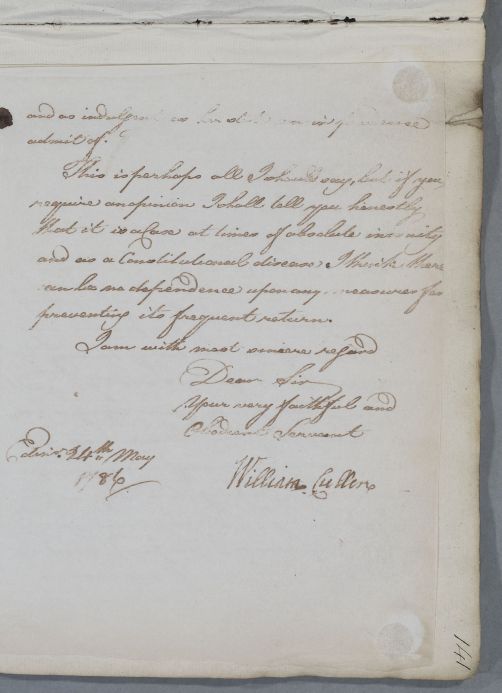 and as indulgent as
admit of.
This is perhaps all I should say, but if you
require an opinion I shall tell you honestly
that it is a Case at times of absolute insanity
and as a Constitutional disease I think there
can be no dependence upon any measures for
preventing its frequent return.
I am with most sincere regard
Dear Sir
Your very faithful and
Obedient Servant
Edinr. 24th May
1786
William Cullen
141